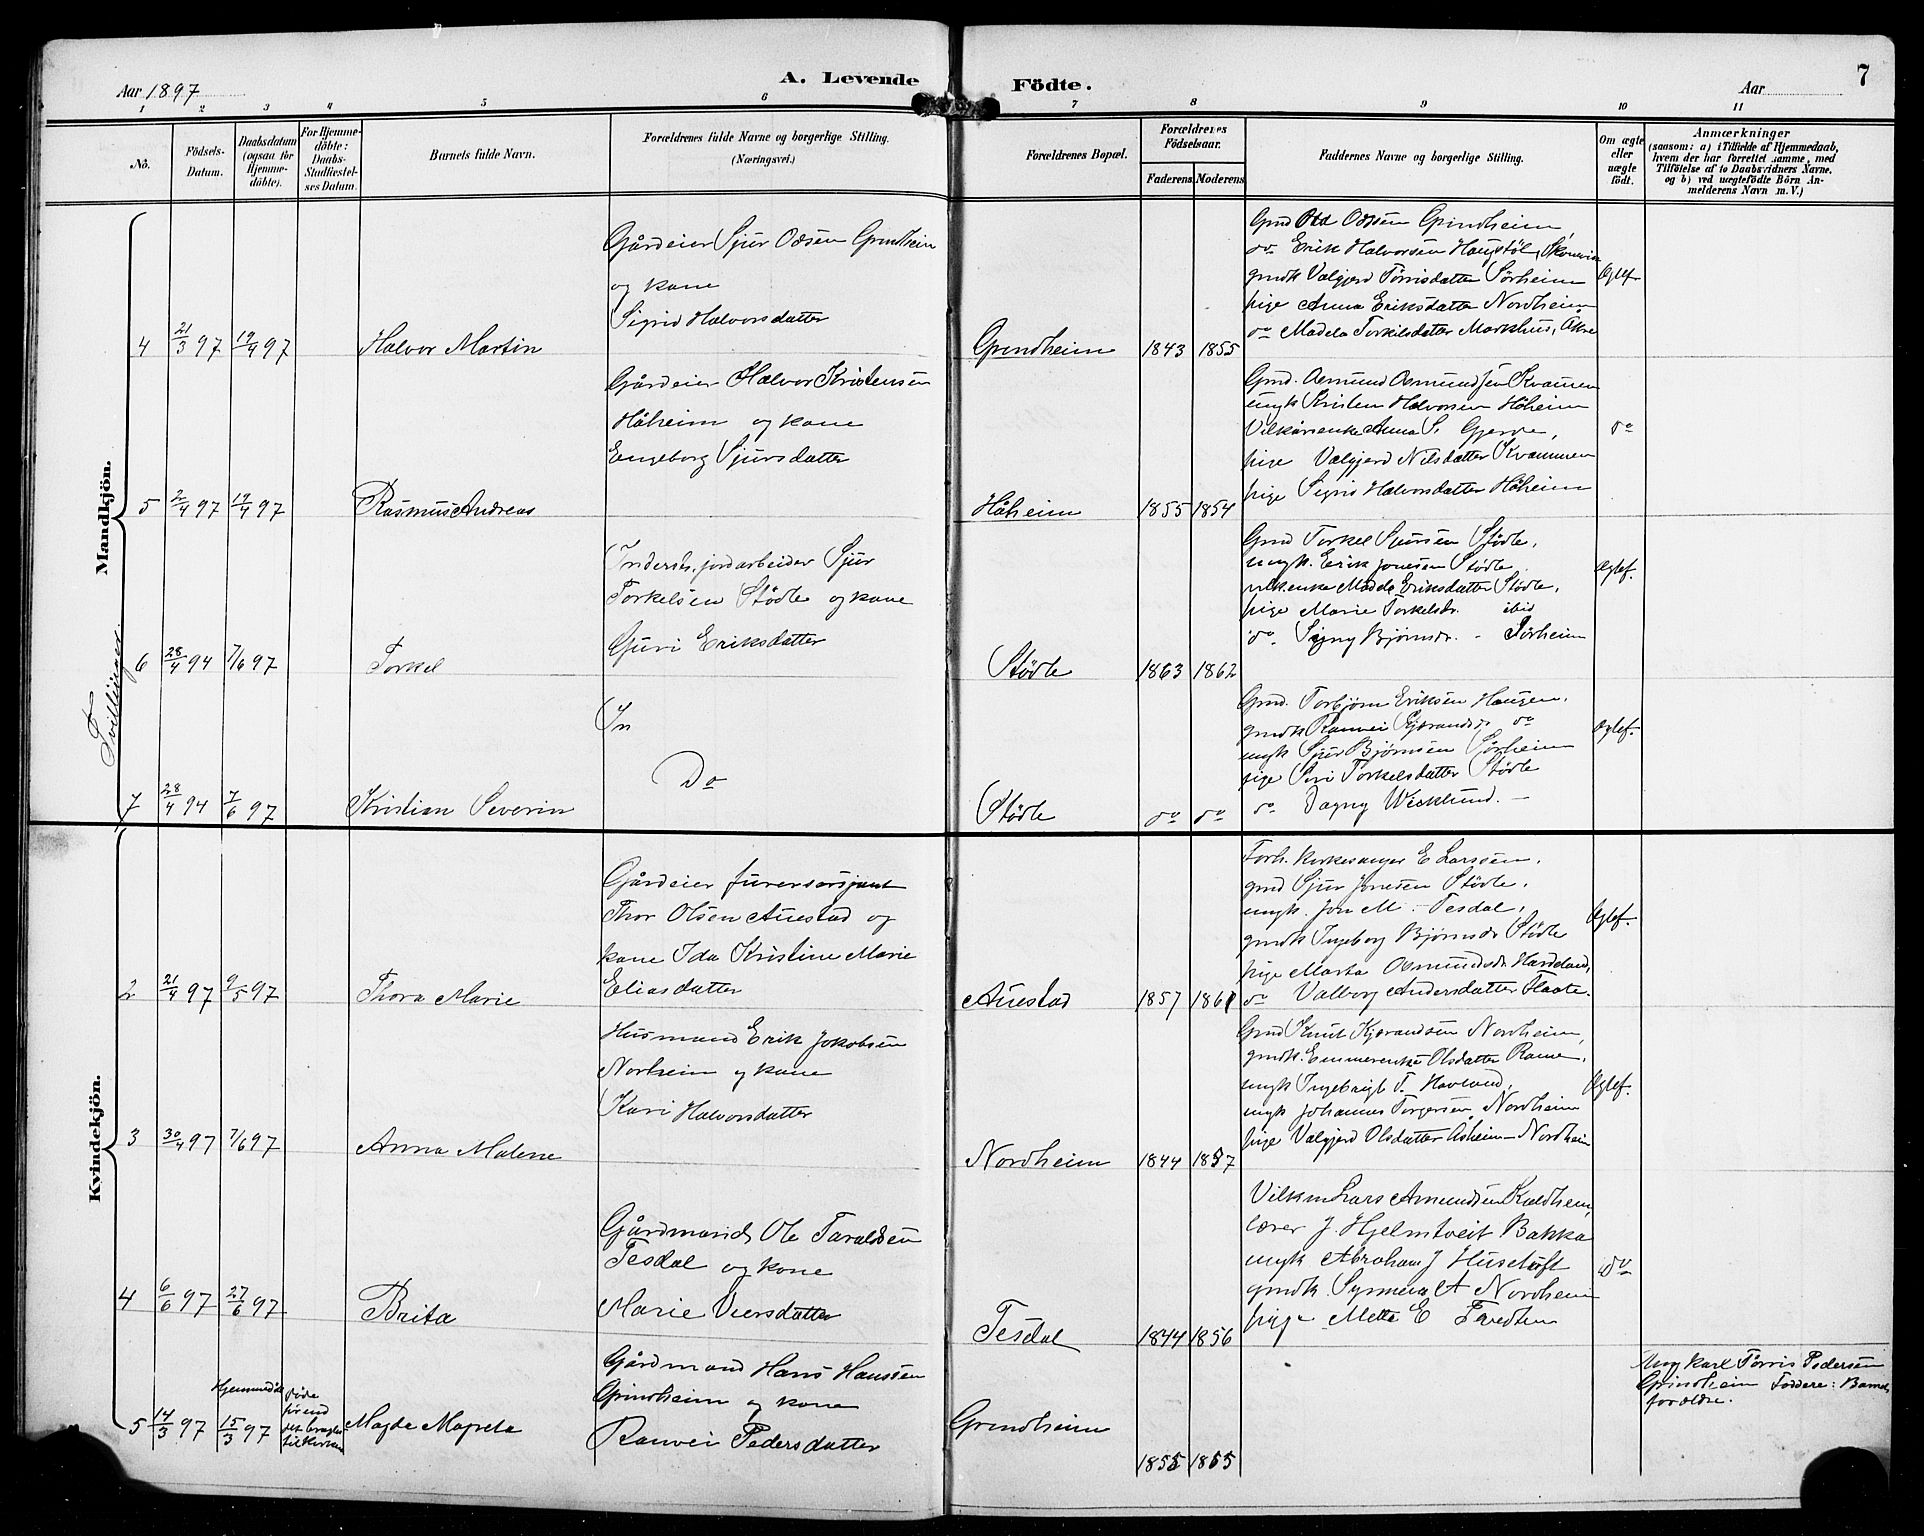 Aar 1897
A. Levende
Födte.
7
Aar
1 2 3 4 5 6 7 8 9 10 11
No.
Födsels-
Datum.
Daabsdatum
(ogsaa for
Hjemme-
döbte).
For Hjemme-
döbte:
Daabs-
Stadfæstel-
ses Datum.
Barnets fulde Navn.
Forældrenes fulde Navne og borgerlige Stilling.
(Næringsvei.)
Forældrenes Bopæl.
Forældrenes
Födselsaar.
Faderens Moderens
Faddernes Navne og borgerlige Stilling.
Om ægte
eller
uægte
födt.
Anmærkninger
(saasom: a) i Tilfælde af Hjemmedaab,
hvem der har forrettet samme, med
Tilföielse af to Daabsvidners Navne,
og b) ved uægtefödte Börn An-
melderens Navn m. V.)
Mandkjön.
4 21/3 97 19/4 97 Halvor Martin
Gårdeier Sjur Odsen Grindheim
og kone
Sigrid Halvorsdatter
Grindheim 1843 1855
Gmd Odd Odsen Grindheim,
do Erik Halvorsen Haugstøl, Skonevik
gmdk Valgjerd Tørrisdatter Sørheim
pige Anna Eriksdatter Nordheim
do Madela Torkilsdatter Markhus, Åkre
Ægtef
5 2/4 97 19/4 97 Rasmus Andreas
Gårdeier Halvor Kristensen
Håheim og kone
Engeborg Sjursdatter
Håheim 1855 1854
Gmd. Asmund Osmundsen Kvamen
ungk Kristen Halvorsen Håheim
Vilkårenke Anna S. Gjerde,
pige Valgjerd Nilsdatter Kvammen
pige Sigrid Halvorsdatter Håheim
do
Tvillinger.
6 28/4 94 7/6 97 Torkel
Inderst. jordarbeider Sjur
Torkelsen Stødle og kone
Guri Eriksdatter
Stødle 1863 1862
Gmd Torkel Sjursen Stødle,
ungk. Erik Jonesen Stødle,
vilkenke Madela Eriksdatter Stødle,
pige Marie Torkelsdr. ibid
do Signy Bjørnsdr. - Sørheim
Ægtef.
7 28/4 94 7/6 97 Kristian Severin
In
Do
Stødle do do
Gmd. Torbjørn Eriksen Haugen,
gmdk Ranvei Kjærandsdr do
ungk Sjur Bjørnsen Sørheim
pige Siri Torkelsdatter Stødle
do. Dagny Wicklund. -
Ægtef.
Kvindekjön.
2 21/4 97 9/5 97 Thora Marie
Gårdeier furersersjant
Thor Olsen Auestad og
kone Ida Kristine Marie
Eliasdatter
Auestad 1857 1861
Forh. kirkesanger E Larssen,
gmd Sjur Jonesen Stødle,
ungk. Jon M. Tesdal,
gmdk Ingeborg Bjørnsdr Stødle
pige Marta Osmundsdr Hardeland,
do Valborg Andersdatter Flaate.
Ægtef.
3 30/4 97 7/6 97 Anna Malene
Husmand Erik Jakobsen
Norheim og kone
Kari Halvorsdatter
Nordheim 1844 1857
Gmd Knut Kjærandsen Nordheim,
gmdk. Emmerenke Olsdatter Rame,
ungk Ingebrigt T. Havland,
ungk Johannes Torgersen Nordheim
pige Valgjerd Olsdatter Åsheim - Nordheim
Ægtef.
4 6/6 97 27/6 97 Brita
Gårdmand Ole Taraldsen
Tesdal og kone
Marie Viersdatter
Tesdal 1844 1856
Vilkm Lars Amundsen Kaldheim,
lærer J. Hjelmtveit Bakka
ungk Abraham J Husetuft
gmdk. Synneva A Nordheim
pige Metta E
do
5 14/3 97 Hjemmedøbt 15/3 97
Døde
førend
det bragtes
til kirken
Magda Magreta
Gårdmand Hans Hanssen
Grindheim og kone
Ranvei Pedersdatter
Grindheim
1855 1855
Ung karl Tørris Pedersen
Grindheim Faddere: Barnets
forældre.